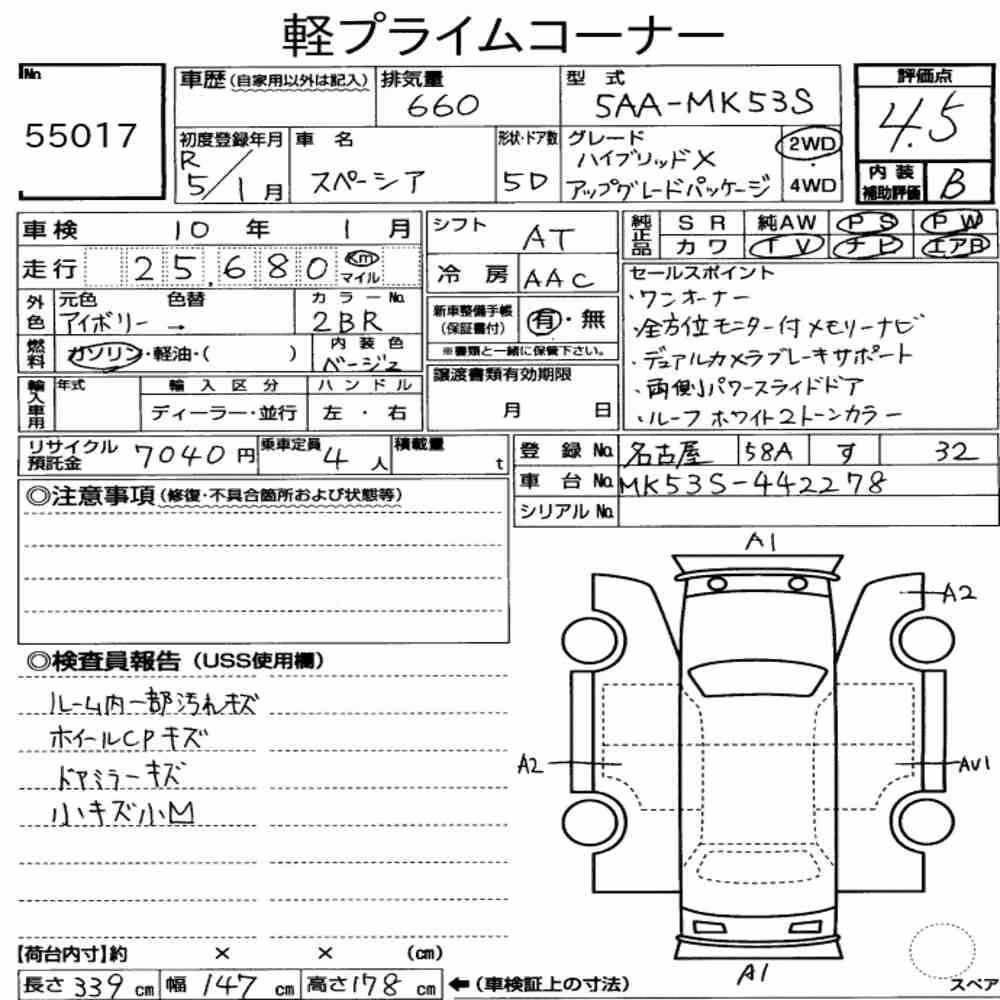 軽プライムコーナー
No. 55017
車歴 (自家用以外は記入) 排気量 660 型式 5AA-MK53S 評価点 4.5
初度登録年月 R 5/1月 車名 スペーシア 形状・ドア数 5D グレード ハイブリッドX アップグレードパッケージ 2WD・4WD 内装補助評価 B
車検 10年 1月 シフト AT 純正品 SR 純AW PS PW
カワ TV ナビ エアB
走行 25,680 Km マイル 冷房 AAC
外色 元色 アイボリー 色替 → カラーNo. 2BR
新車整備手帳 (保証書付) 有・無
※書類と一緒に保管下さい。
燃料 ガソリン・軽油・( ) 内装色 ベージュ
セールスポイント
・ワンオーナー
・全方位モニター付メモリーナビ
・デュアルカメラブレーキサポート
・両側パワースライドドア
・ルーフホワイト2トーンカラー
輸入車用 年式 輸入区分 ディーラー・並行 ハンドル 左・右
譲渡書類有効期限 月 日
リサイクル預託金 7040円 乗車定員 4人 積載量 t
登録No. 名古屋 58A す 32
車台No. MK53S-442278
シリアルNo.
◎注意事項 (修復・不具合箇所および状態等)
◎検査員報告 (USS使用欄)
ルーム内一部汚れキズ
ホイールCPキズ
ドアミラーキズ
小キズ小凹
A1
A2
A2
AV1
A1
スペア
【荷台内寸】約 × × (cm)
長さ 339 cm 幅 147 cm 高さ 178 cm ←(車検証上の寸法)